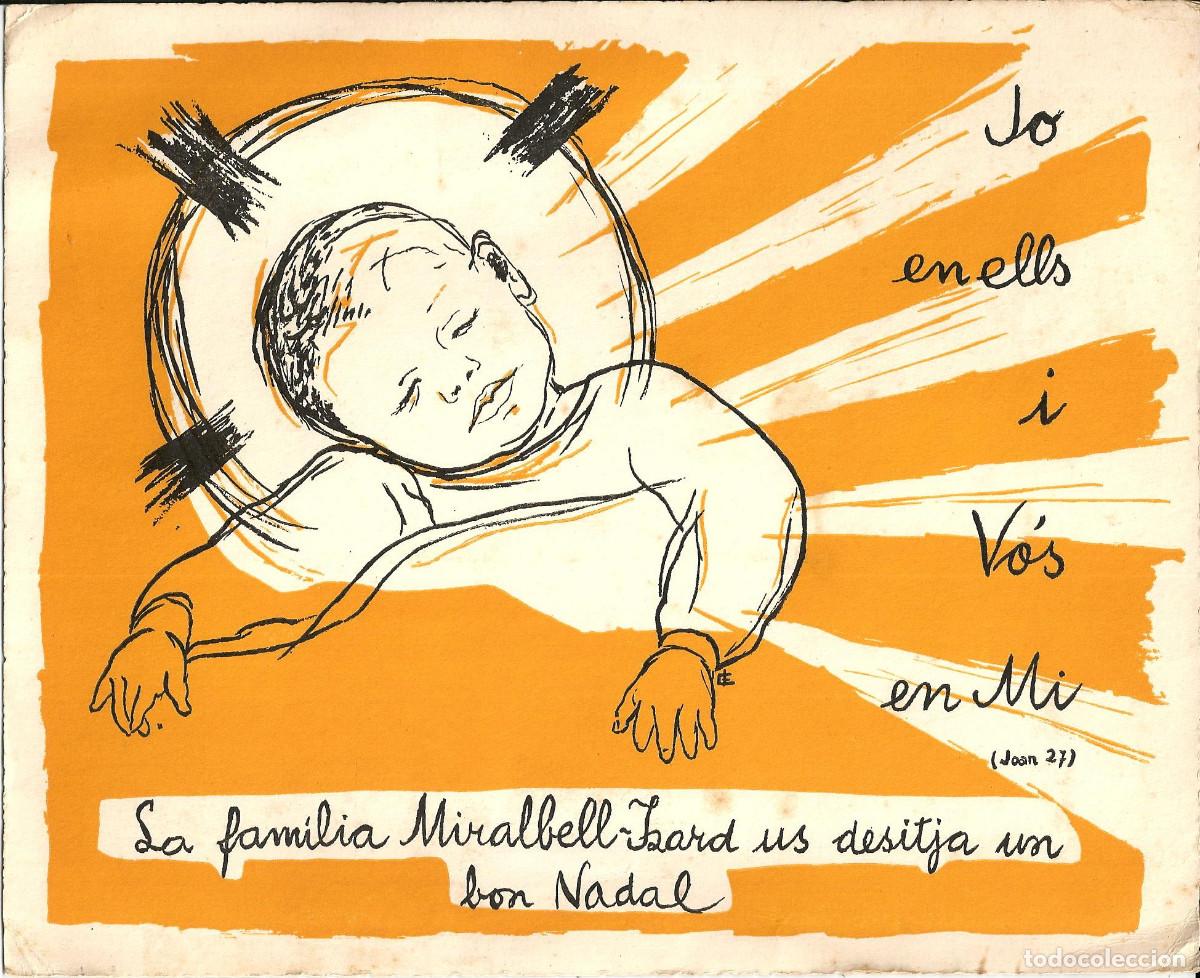 Jo
en ells
i
Vós
en Mi
(Joan 27)
La família Miralbell-Izard us desitja un
bon Nadal
todocoleccion